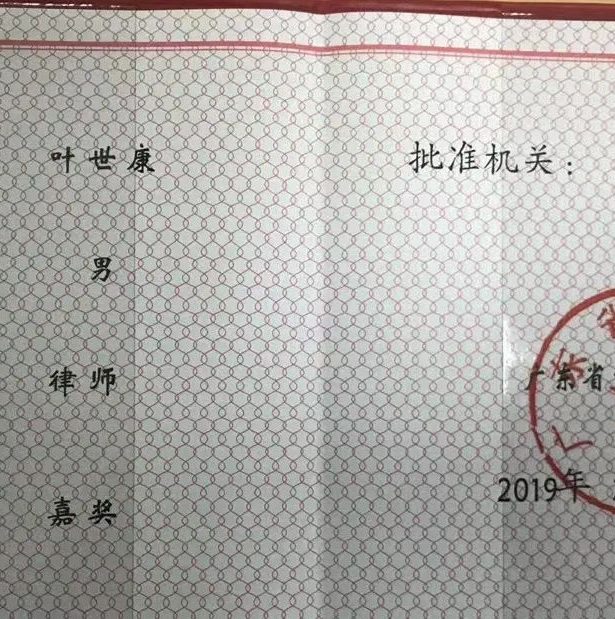 叶世康
批准机关：
男
广东省
律师
2019年
嘉奖